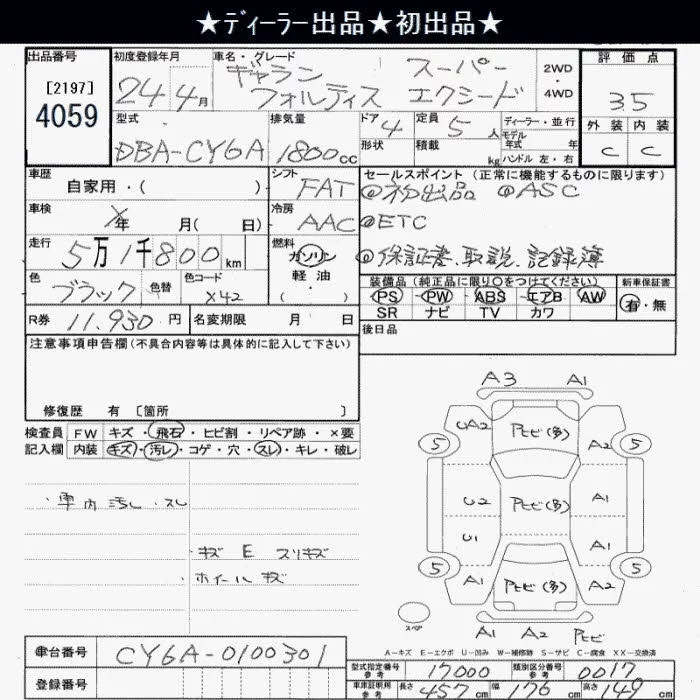 ★ディーラー出品★初出品★
出品番号 [2197] 4059
初度登録年月 24年 4月
車名・グレード ギャラン フォルティス スーパー エクシード
2WD ・ 4WD
評価点 3.5
外装 C 内装 C
型式 DBA-CY6A
排気量 1800cc
ドア 4 形状
定員 5人 積載 kg
ディーラー・並行
モデル年式 年
ハンドル 左・右
車歴 自家用・( )
シフト FAT
セールスポイント(正常に機能するものに限ります)
◎初出品 ◎ASC
◎ETC
◎保証書、取説、記録簿
車検 年 月(日)
冷房 AAC
走行 5万1千800km
燃料 ガソリン 軽油 ・( )
色 ブラック 色替
色コード X42
装備品(純正品に限り○をつけてください)
PS ・ PW ・ ABS ・ エアB ・ AW
SR ナビ TV カワ
新車保証書 有・無
R券 11,930円
名変期限 月 日
後日品
注意事項申告欄(不具合内容等は具体的に記入して下さい)
修復歴 有 [箇所 ]
検査員記入欄
FW キズ・飛石・ヒビ割・リペア跡・×要
内装 キズ・汚レ・コゲ・穴・スレ・キレ・破レ
・車内汚レ・スレ
・キズ E スリキズ
・ホイールキズ
A3 A1
UA2 Pヒビ(多) A2
5 5
U2 Pヒビ(多) A1
U1 A1
5 5
A1 Pヒビ(多) A2
A1 A2 Pヒビ
スペア
A－キズ E－エクボ U－凹み W－補修跡 S－サビ C－腐食 XX－交換済
車台番号 CY6A-0100301
登録番号
型式指定番号 参考 17000
類別区分番号 参考 0017
車庫証明用 参考 長さ 457cm 幅 176cm 高さ 149cm